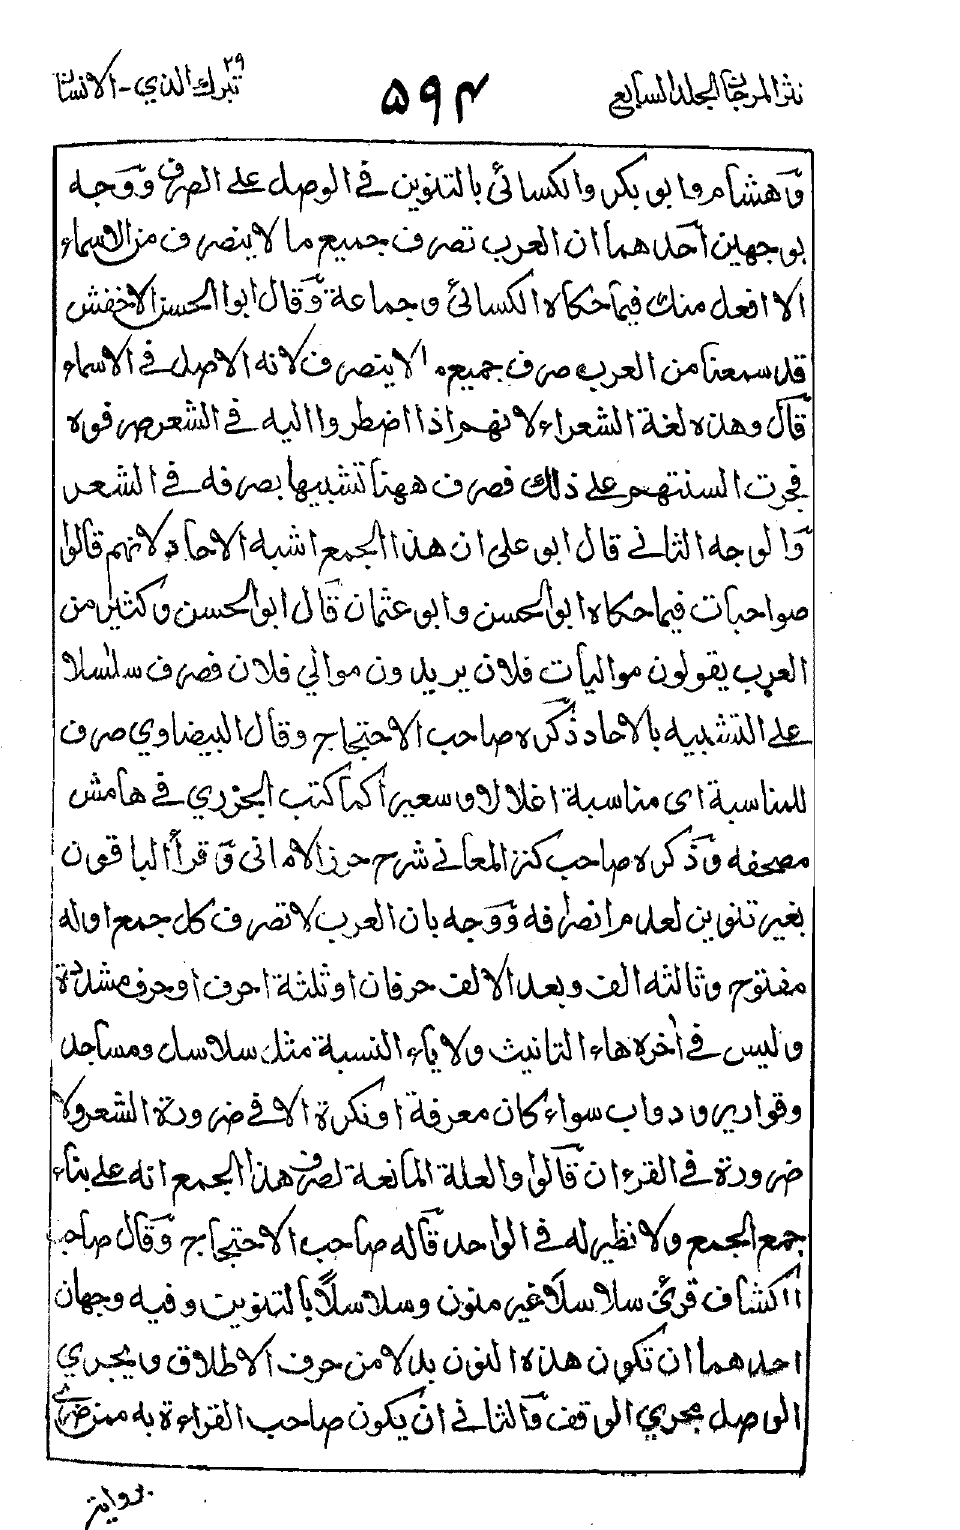 نثر المرجان المجلد السابع ۵۹۴ تبرك الذي ۲۹ - الانسان
وهشام وابو بكر والكسائي بالتنوين في الوصل على الصرف ووجه
بوجهين احدهما ان العرب تصرف جميع ما لا ينصرف من الاسماء
الا افعل منك فيما حكاه الكسائي وجماعة وقال ابو الحسن الاخفش
قد سمعنا من العرب صرف جميع ما لا ينصرف لانه الاصل في الاسماء
قال وهذه لغة الشعراء لانهم اذا اضطروا اليه في الشعر صرفوه
فجرت السنتهم على ذلك فصرف ههنا تشبيها بصرفه في الشعر
والوجه الثاني قال ابو علي ان هذا الجمع اشبه الاحاد لانهم قالوا
صواحبات فيما حكاه ابو الحسن وابو عثمان قال ابو الحسن وكثير من
العرب يقولون مواليات فلان يريدون موالي فلان فصرف سلسلا
على التشبيه بالاحاد ذكره صاحب الاحتجاج وقال البيضاوي صرف
للمناسبة اى مناسبة اغلالا وسعيرا كما كتب الجزري في هامش
مصحفه وذكره صاحب كنز المعاني شرح حرز الاماني وقرأ الباقون
بغير تنوين لعدم انصرافه ووجه بان العرب لا تصرف كل جمع اوله
مفتوح وثالثه الف وبعد الالف حرفان او ثلثة احرف او حرف مشددة
وليس في اخره هاء التانيث ولا ياء النسبة مثل سلاسل ومساجد
وقوارير ودواب سواء كان معرفة او نكرة الا في ضرورة الشعر ولا
ضرورة في القرءان قالوا والعلة المانعة لصرف هذا الجمع انه على بناء
جمع الجمع ولا نظير له في الواحد قاله صاحب الاحتجاج وقال صاحب
الكشاف قرئ سلاسلا غير منون وسلاسلاً بالتنوين وفيه وجهان
احدهما ان تكون هذه النون بدلا من حرف الاطلاق ويجري
الوصل مجري الوقف والثاني ان يكون صاحب القراءة به ممن ضري
بروايتر